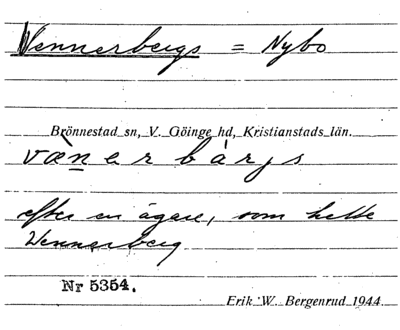 Wennerbergs = Nybo
Brönnestad sn, V. Göinge hd, Kristianstads län.
væ̀nerbárjs
efter en ägare, som hette
Wennerberg
Nr 5354.
Erik W. Bergenrud 1944.